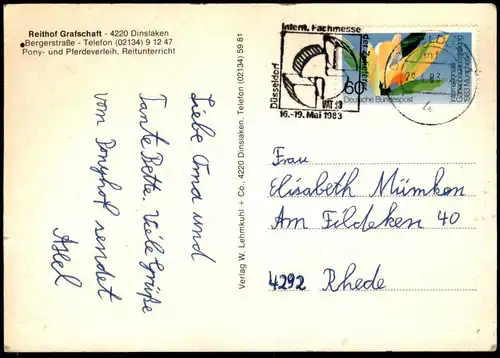 Reithof Grafschaft - 4220 Dinslaken
Bergerstraße - Telefon (02134) 9 12 47
Pony- und Pferdeverleih, Reitunterricht
Liebe Oma und
Tante Bette. Viele Grüße
vom Ponyhof sendet
Axel
Verlag W. Lehmkuhl + Co., 4220 Dinslaken, Telefon (02134) 59 81
Intern. Fachmesse
der Zulieferer
Düsseldorf
VAT 83
16.-19. Mai 1983
60
Deutsche Bundespost
Internationale
Gartenbauausstellung
1983 München
Frau
Elisabeth Mümken
Am Fildeken 40
4292 Rhede